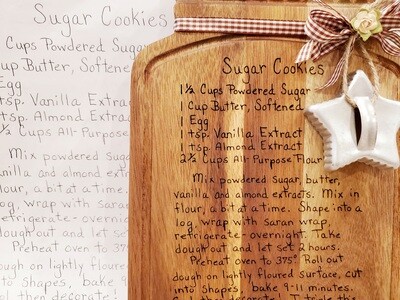 Sugar Cookies
Cups Powdered Sugar
Cup Butter, Softened
Egg
tsp. Vanilla Extract
tsp. Almond Extract
½ Cups All-Purpose
Mix powdered sugar
vanilla and almond extra
flour, a bit at a time.
log, wrap with saran
refrigerate - overnigh
dough out and let
Preheat oven to 375
dough on lightly floured
into shapes, bake
then decorate!
Sugar Cookies
1½ Cups Powdered Sugar
1 Cup Butter, Softened
1 Egg
1 tsp. Vanilla Extract
1 tsp. Almond Extract
2½ Cups All-Purpose Flour
Mix powdered sugar, butter,
vanilla and almond extracts. Mix in
flour, a bit at a time. Shape into a
log, wrap with saran wrap,
refrigerate - overnight. Take
dough out and let set 2 hours.
Preheat oven to 375° Roll out
dough on lightly floured surface, cut
into shapes, bake 9-11 minutes.